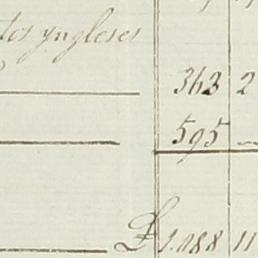 tos yngleses
363 2
595 —
£ 1.188 11